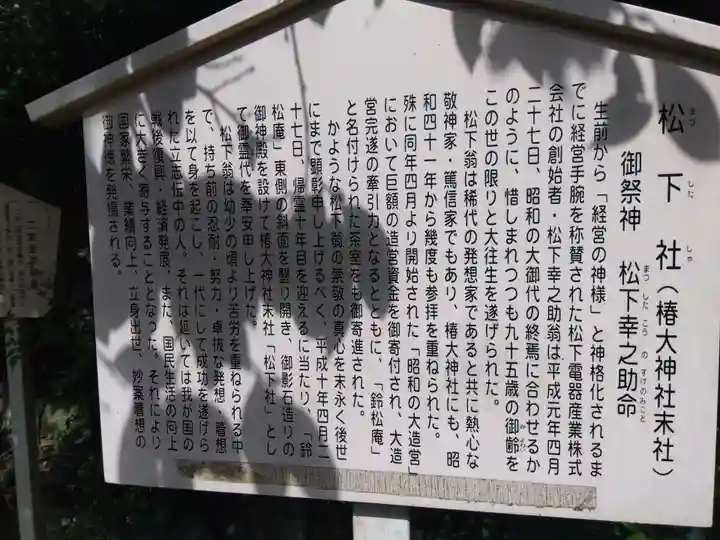 松下社(椿大神社末社)
まつ した しや
御祭神 松下幸之助命
まつ した こう の すけのみこと
生前から「経営の神様」と神格化されるま
でに経営手腕を称賛された松下電器産業株式
会社の創始者・松下幸之助翁は平成元年四月
二十七日、昭和の大御代の終焉に合わせるか
のように、惜しまれつつも九十五歳の御齢を
よわい
この世の限りと大往生を遂げられた。
松下翁は稀代の発想家であると共に熱心な
敬神家・篤信家でもあり、椿大神社にも、昭
和四十一年から幾度も参拝を重ねられた。
殊に同年四月より開始された「昭和の大造営」
において巨額の造営資金を御寄付され、大造
営完遂の牽引力となるとともに、「鈴松庵」
と名付けられた茶室をも御寄進された。
かような松下翁の崇敬の真心を末永く後世
にまで顕彰申し上げるべく、平成十年四月二
十七日、帰霊十年目を迎えるに当たり、「鈴
松庵」東側の斜面を墾り開き、御影石造りの
御神殿を設けて椿大神社末社「松下社」とし
て御霊代を奉安申し上げた。
松下翁は幼少の頃より苦労を重ねられる中
で、持ち前の忍耐・努力・卓抜な発想・着想
を以て身を起こし、一代にして成功を遂げら
れた立志伝中の人。それは延いては我が国の
戦後復興・経済発展、また、国民生活の向上
に大きく寄与することとなった。それにより
国家繁栄、業績向上、立身出世、妙案着想の
御神徳を発揚される。